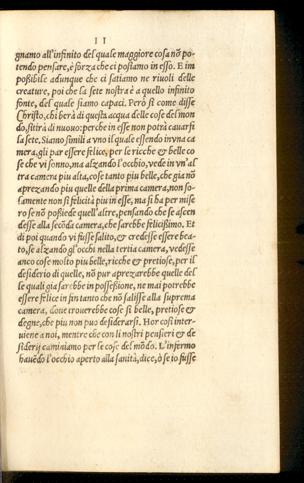 11
gnamo all'infinito del quale maggiore cosa nõ po-
tendo pensare, è forza che ci posiamo in esso. E im
poßibile adunque che ci satiamo ne riuoli delle
creature, poi che la sete nostra è a quello infinito
fonte, del quale siamo capaci. Però sì come disse
Christo, chi berà di questa acqua delle cose del mon
do, sitirà di nuouo: perche in esse non potrà cauarsi
la sete. Siamo simili a vno il quale essendo in vna ca
mera, gli par essere felice, per le ricche & belle co
se che vi sonno, ma alzando l'occhio, vede in vn'al
tra camera piu alta, cose tanto piu belle, che gia nõ
aprezando piu quelle della prima camera, non so-
lamente non si felicità piu in esse, ma si ha per mise
ro se nõ poßiede quell'altre, pensando che se ascen
desse alla secõda camera, che sarebbe felicißimo. Et
di poi quando vi fusse salito, & credesse essere bea-
to, se alzando gl'occhi nella tertia camera, vedesse
anco cose molto piu belle, ricche & pretiose, per il
desiderio di quelle, nõ pur aprezarebbe quelle del
le quali gia sarebbe in posseßione, ne mai potrebbe
essere felice in fin tanto che nõ salisse alla suprema
camera, doue trouerebbe cose sì belle, pretiose &
degne, che piu non puo desiderarsi. Hor cosi inter-
uiene a noi, mentre che con li nostri pensieri & de
siderij caminiamo per le cose del mõdo. L'infermo
hauẽdo l'occhio aperto alla sanità, dice, ò se io fusse